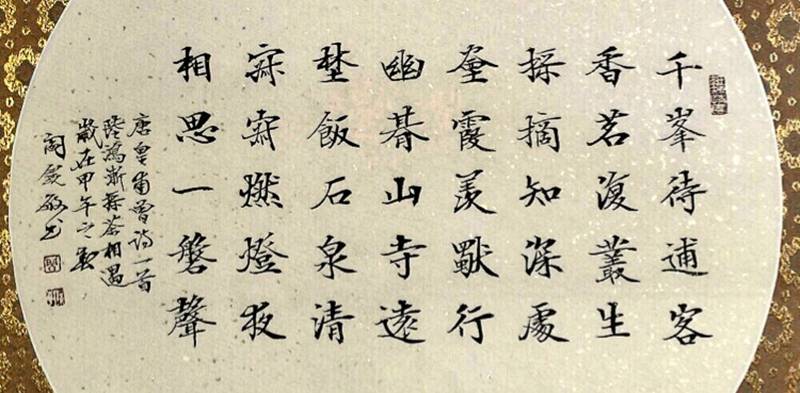 千峯待逋客
香茗復叢生
採摘知深處
霞羨獨行
幽朞山寺遠
埜飯石泉清
寂寂燃燈夜
相思一磬聲
唐皇甫曾詩一首
陸鴻漸採茶相遇
歲在甲午之夏
敏书